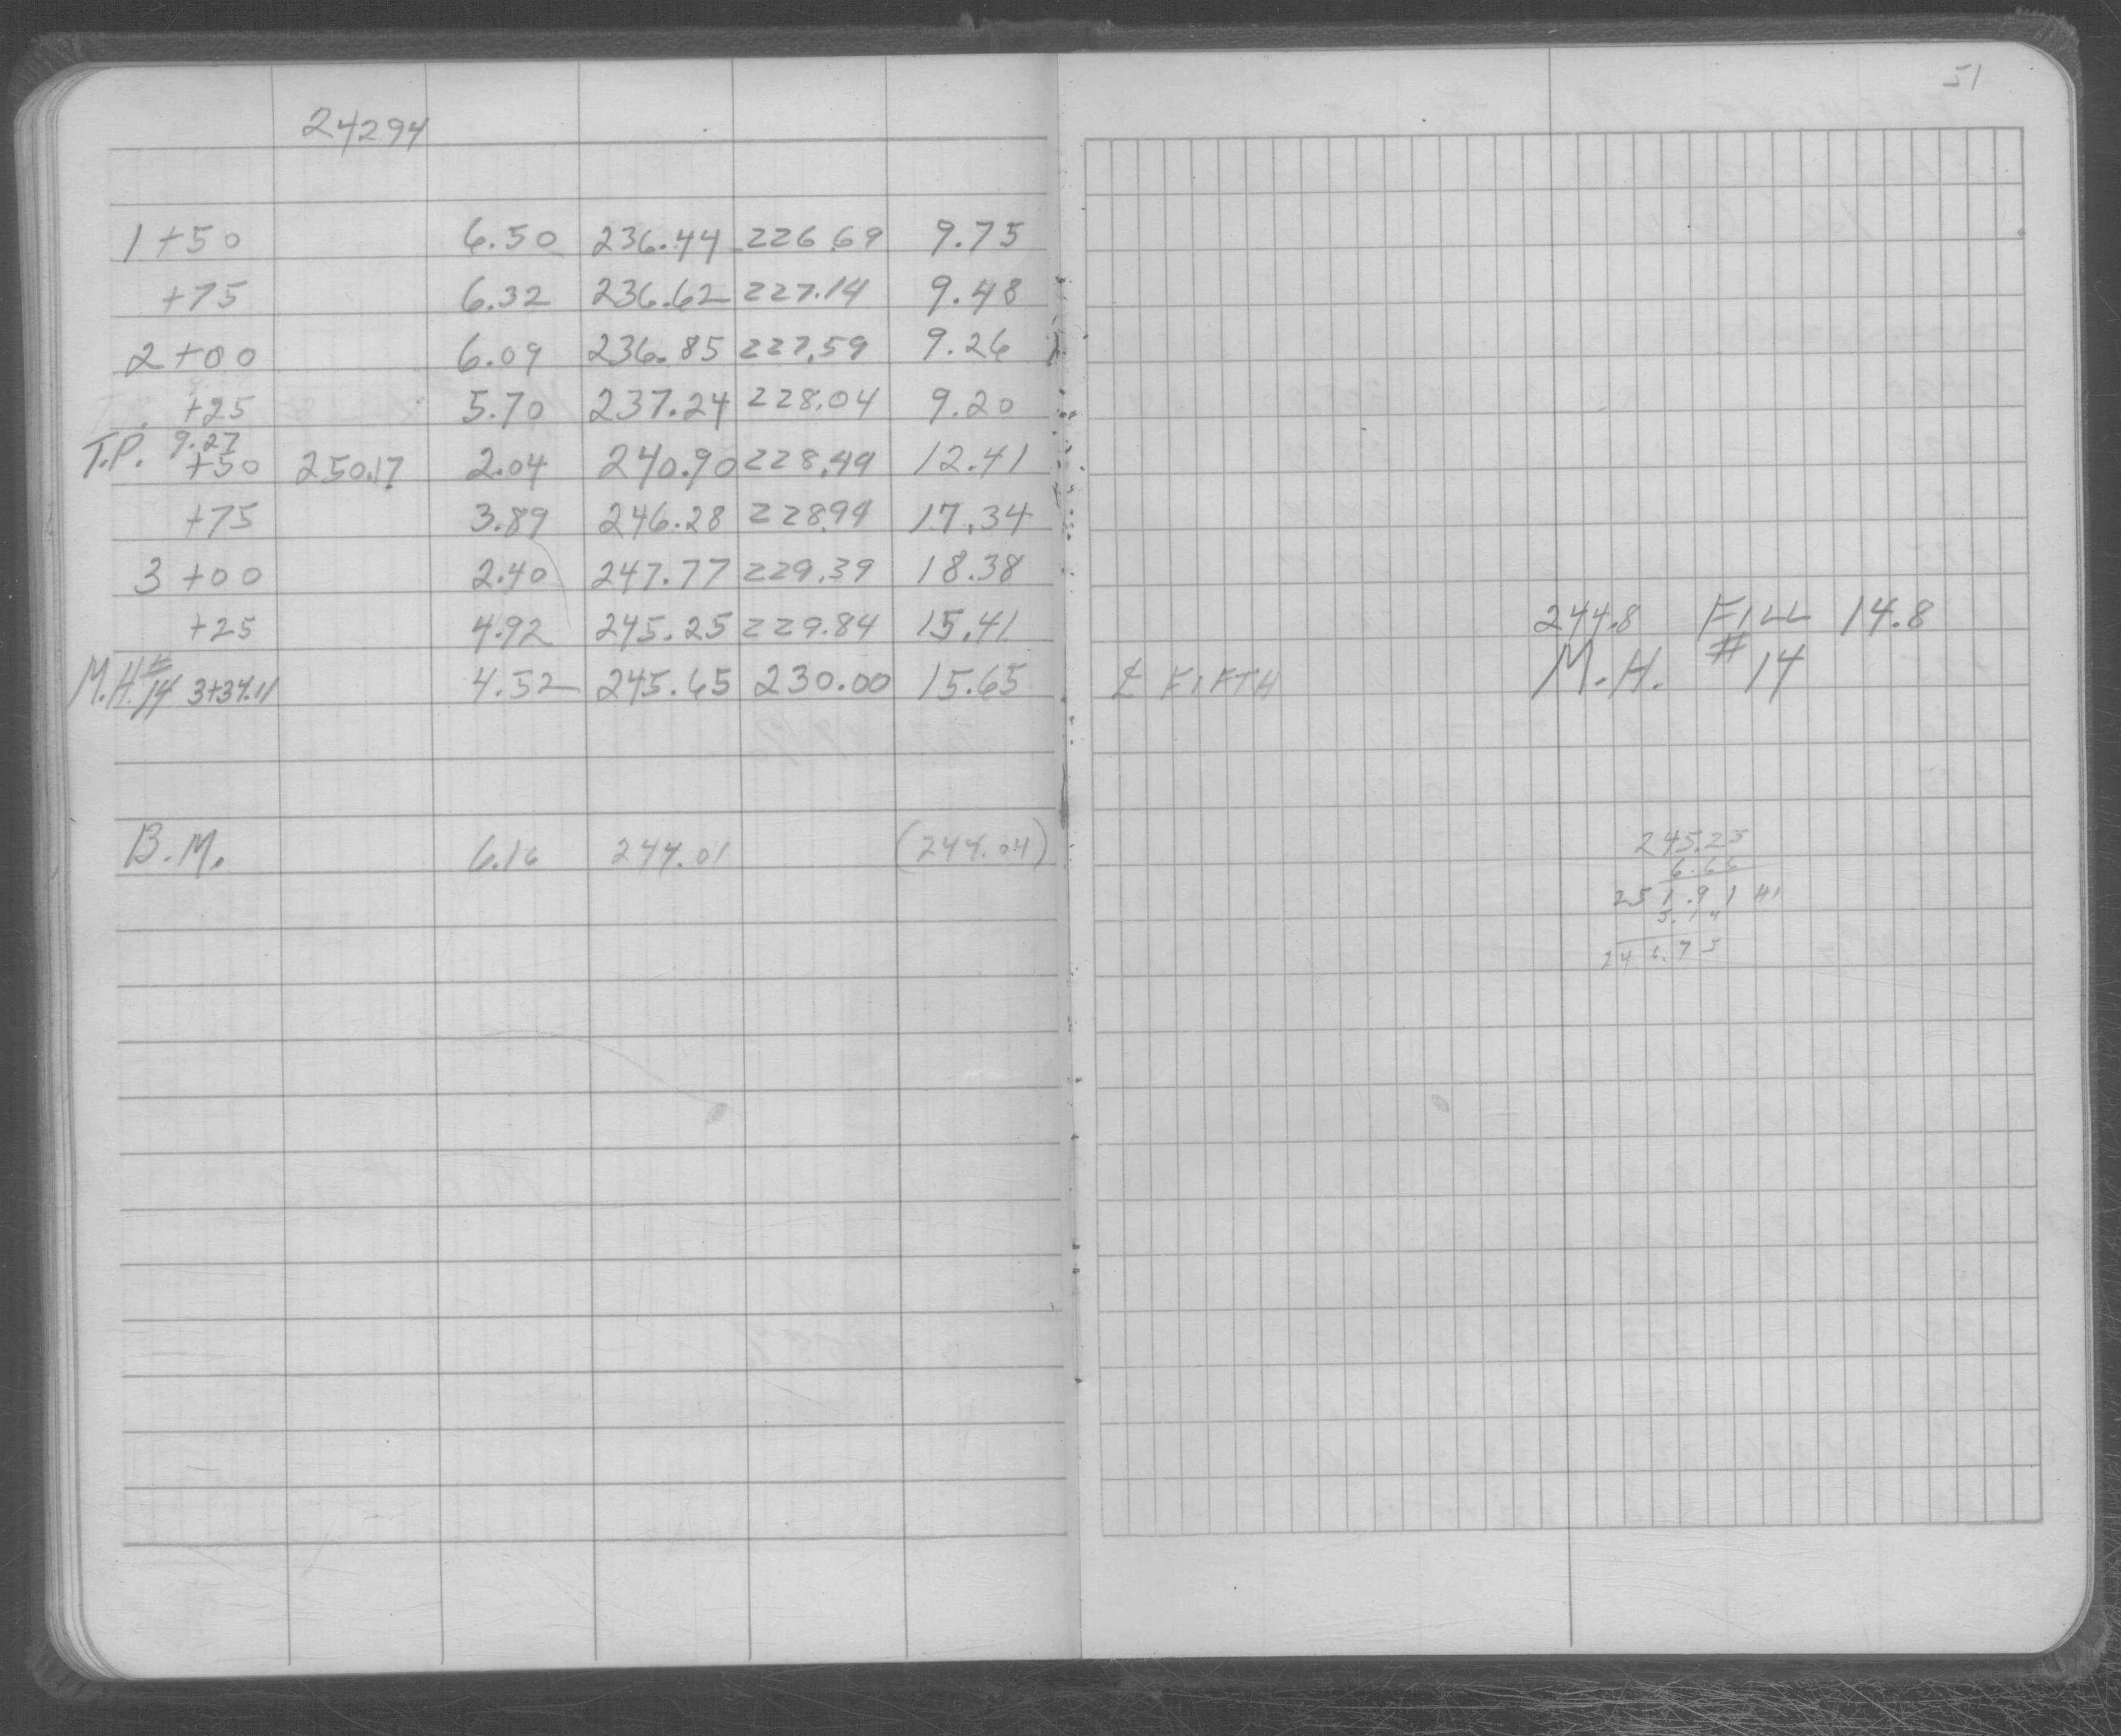 51
24294
1+50 6.50 236.44 226.69 9.75
+75 6.32 236.62 227.14 9.48
2+00 6.09 236.85 227.59 9.26
+25 5.70 237.24 228.04 9.20
T.P. 9.27
+50 250.17 2.04 240.90 228.49 12.41
+75 3.89 246.28 228.94 17.34
3+00 2.40 247.77 229.39 18.38
+25 4.92 245.25 229.84 15.41
244.8 FILL 14.8
M.H.# 14 3+34.11 4.52 245.65 230.00 15.65
℄ FIFTH M.H. #14
B.M. 6.16 244.01 (244.04)
245.25
6.66
251.91 HI
5.1
246.75